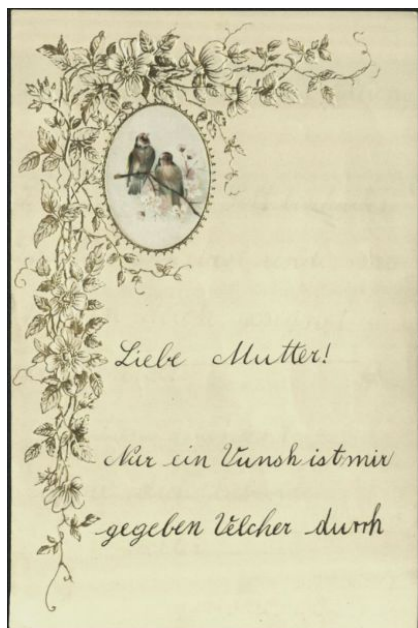 Liebe Mutter!
Nur ein Vunsh ist mir
gegeben Velcher durrh